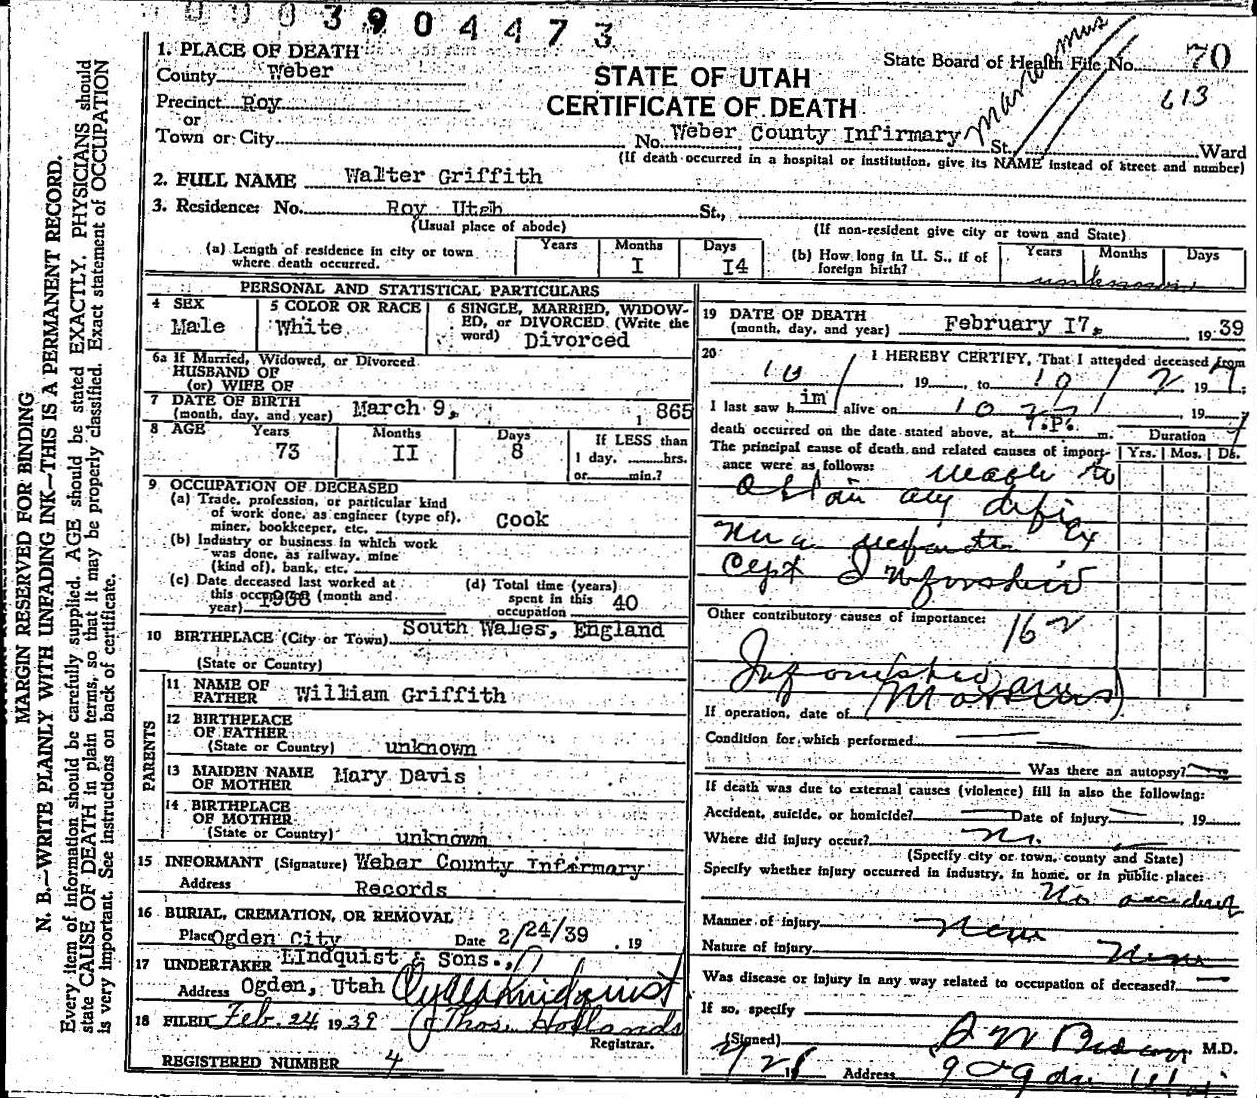 0003904473
1. PLACE OF DEATH
County Weber
Precinct Roy
or
Town or City
STATE OF UTAH
CERTIFICATE OF DEATH
State Board of Health File No. 70
613
Marasmus
No. Weber County Infirmary St. Ward
(If death occurred in a hospital or institution, give its NAME instead of street and number)
2. FULL NAME Walter Griffith
3. Residence: No. Roy Utah St.,
(Usual place of abode) (If non-resident give city or town and State)
(a) Length of residence in city or town where death occurred. Years Months I Days I4
(b) How long in U. S., if of foreign birth? Years Months Days unknown
PERSONAL AND STATISTICAL PARTICULARS
4 SEX Male
5 COLOR OR RACE White
6 SINGLE, MARRIED, WIDOW-
ED, or DIVORCED (Write the
word) Divorced
6a If Married, Widowed, or Divorced
HUSBAND OF
(or) WIFE OF
7 DATE OF BIRTH
(month, day, and year) March 9, 1865
8 AGE Years 73 Months II Days 8 If LESS than
1 day, hrs.
or min.?
9 OCCUPATION OF DECEASED
(a) Trade, profession, or particular kind
of work done, as engineer (type of),
miner, bookkeeper, etc. Cook
(b) Industry or business in which work
was done, as railway, mine
(kind of), bank, etc.
(c) Date deceased last worked at
this occupation (month and
year)
(d) Total time (years)
spent in this
occupation 40
10 BIRTHPLACE (City or Town) South Wales, England
(State or Country)
PARENTS
11 NAME OF
FATHER William Griffith
12 BIRTHPLACE
OF FATHER
(State or Country) unknown
13 MAIDEN NAME
OF MOTHER Mary Davis
14 BIRTHPLACE
OF MOTHER
(State or Country) unknown
15 INFORMANT (Signature) Weber County Infirmary
Address Records
16 BURIAL, CREMATION, OR REMOVAL
Place Ogden City Date 2/24/39, 19
17 UNDERTAKER LIndquist & Sons.,
Address Ogden, Utah Clyde Lindquist
18 FILED Feb. 24, 1939 Thos. Hollands
Registrar.
REGISTERED NUMBER 4
19 DATE OF DEATH
(month, day, and year) February I7, 1939
20 I HEREBY CERTIFY, That I attended deceased from
10/ , 19 , to 10/2 19
I last saw him alive on 10 19
death occurred on the date stated above, at 7.P. m. Duration
The principal cause of death and related causes of import-
ance were as follows: Yrs. Mos. Ds.
to
obtain any
Other contributory causes of importance: 162
If operation, date of
Condition for which performed
Was there an autopsy?
If death was due to external causes (violence) fill in also the following:
Accident, suicide, or homicide? Date of injury , 19
Where did injury occur? No.
(Specify city or town, county and State)
Specify whether injury occurred in industry, in home, or in public place:
No accident
Manner of injury None
Nature of injury None
Was disease or injury in any way related to occupation of deceased?
If so, specify
(Signed) M.D.
Address Ogden Utah
MARGIN RESERVED FOR BINDING
N. B.—WRITE PLAINLY WITH UNFADING INK—THIS IS A PERMANENT RECORD.
Every item of information should be carefully supplied. AGE should be stated EXACTLY. PHYSICIANS should
state CAUSE OF DEATH in plain terms, so that it may be properly classified. Exact statement of OCCUPATION
is very important. See instructions on back of certificate.